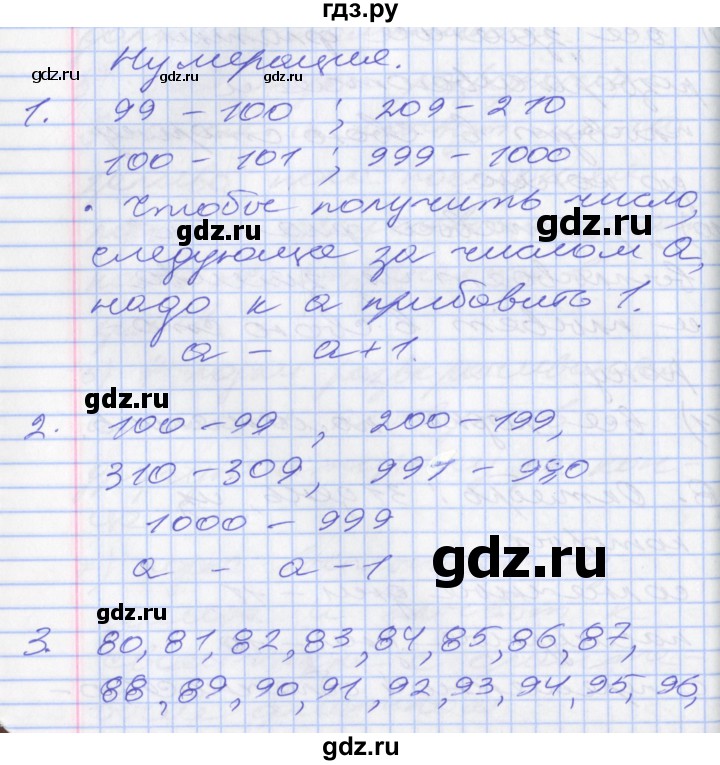 гдз.ру
Нумерация.
gdz.ru gdz.ru gdz.ru
1. 99 - 100 ; 209 - 210
100 - 101 ; 999 - 1000
• Чтобы получить число,
gdz.ru gdz.ru
следующе за числом а,
надо к а прибавить 1.
gdz.ru gdz.ru
а - а+1.
gdz.ru
2. 100 - 99 , 200 - 199,
gdz.ru
310 - 309, 991 - 990
1000 - 999
а - а - 1
gdz.ru
gdz.ru
3. 80, 81, 82, 83, 84, 85, 86, 87,
88, 89, 90, 91, 92, 93, 94, 95, 96,
gdz.ru gdz.ru
gdz.ru